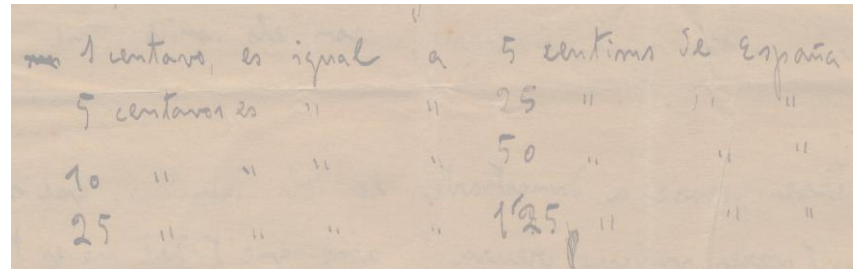 1 centavo, es igual a 5 centims de España
5 centavos es " " 25 " " "
10 " " " " 50 " " "
25 " " " " 1'25 " " "